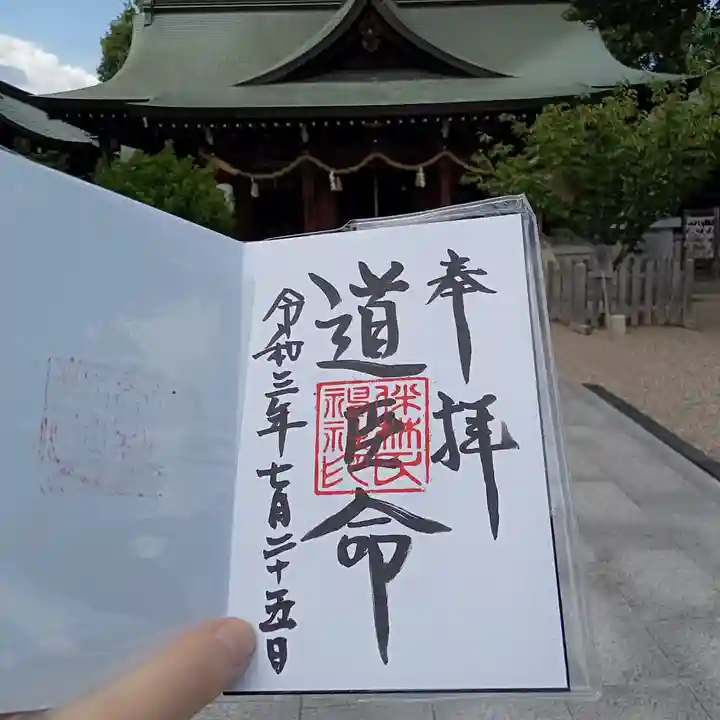 奉拝
道臣命
令和三年七月二十五日